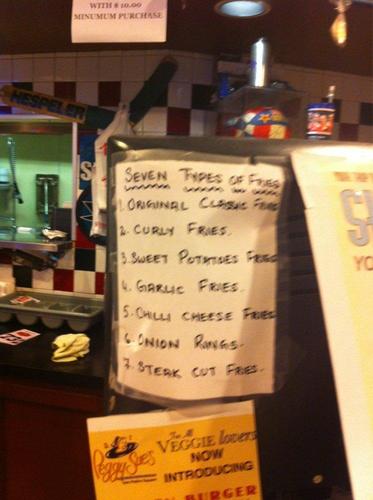 WITH $10.00
MINUMUM PURCHASE
HESPELER
SEVEN TYPES OF FRIES
1. ORIGINAL CLASSIC FRIES
2. CURLY FRIES.
3. SWEET POTATOES FRIES
4. GARLIC FRIES.
5. CHILLI CHEESE FRIES
6. ONION RINGS.
7. STEAK CUT FRIES.
Peggy Sue's
For All
VEGGIE lovers
NOW
INTRODUCING
BURGER
YO